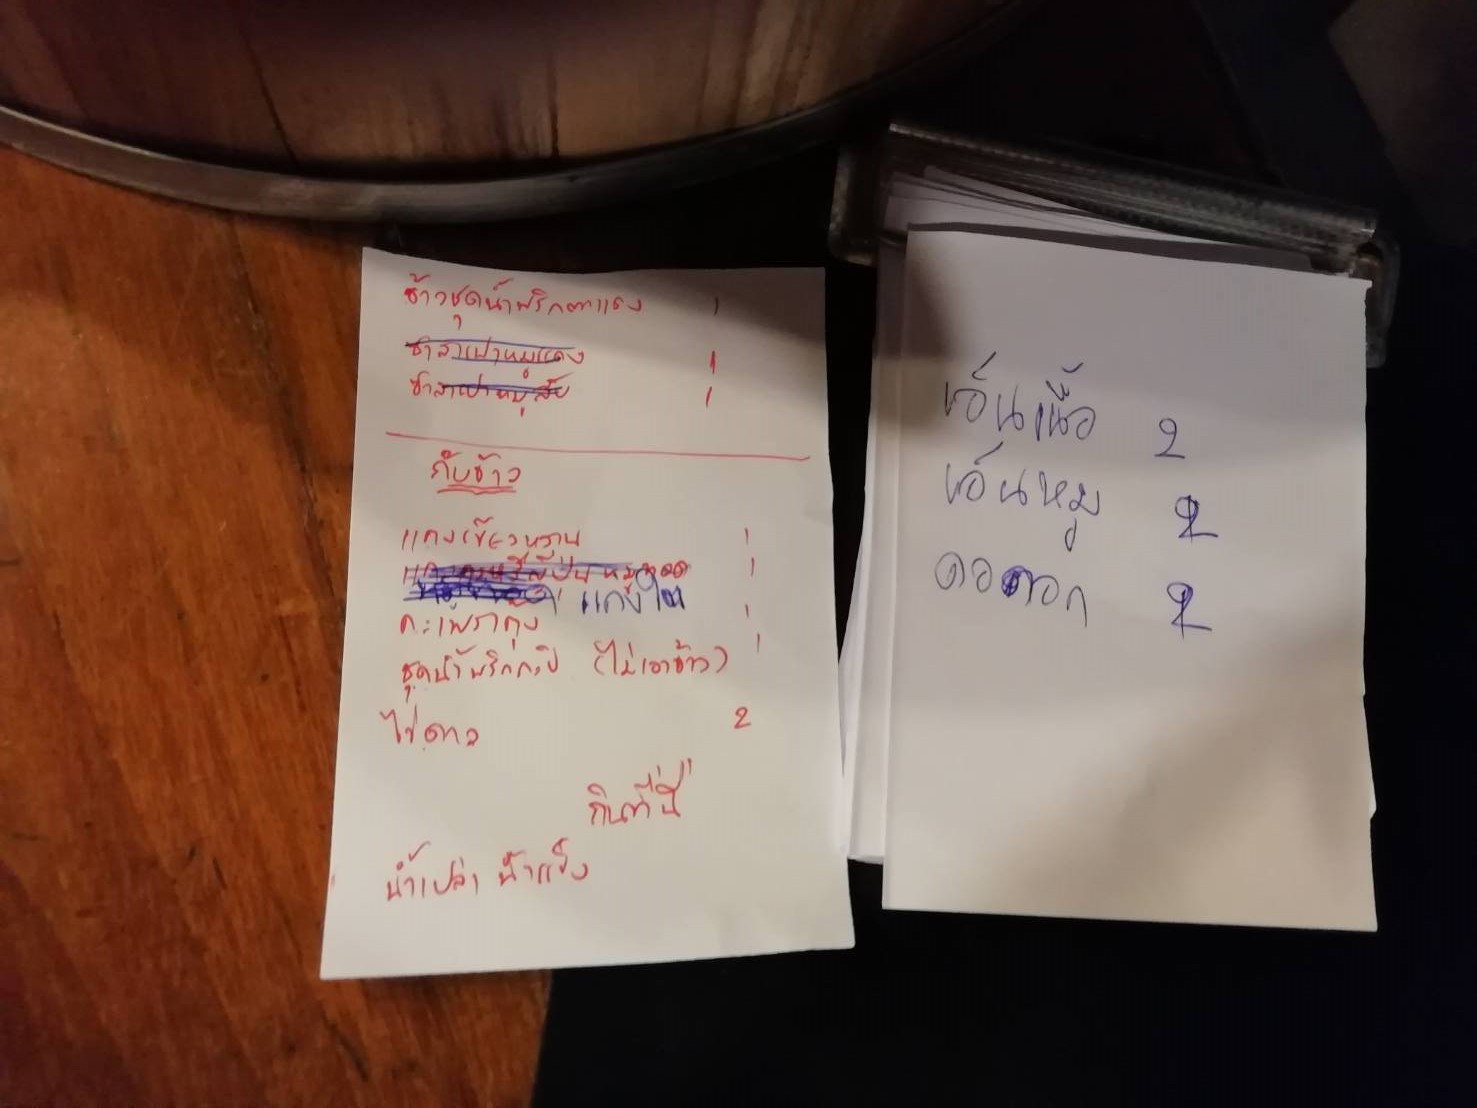 ข้าวชุดน้ำพริกตาแดง 1
ซาลาเปาหมูแดง 1
ซาลาเปาหมูสับ 1
กับข้าว
แกงเขียวหวาน 1
1
แกงใต
กะเพรากุ้ง 1
ชุดน้ำพริกกะปิ (ไม่เอาข้าว) 1
ไข่ดาว 2
กินที่นี่
น้ำเปล่า น้ำแข็ง
เอ็นเนื้อ 2
เอ็นหมู 2
ดอกอก 2